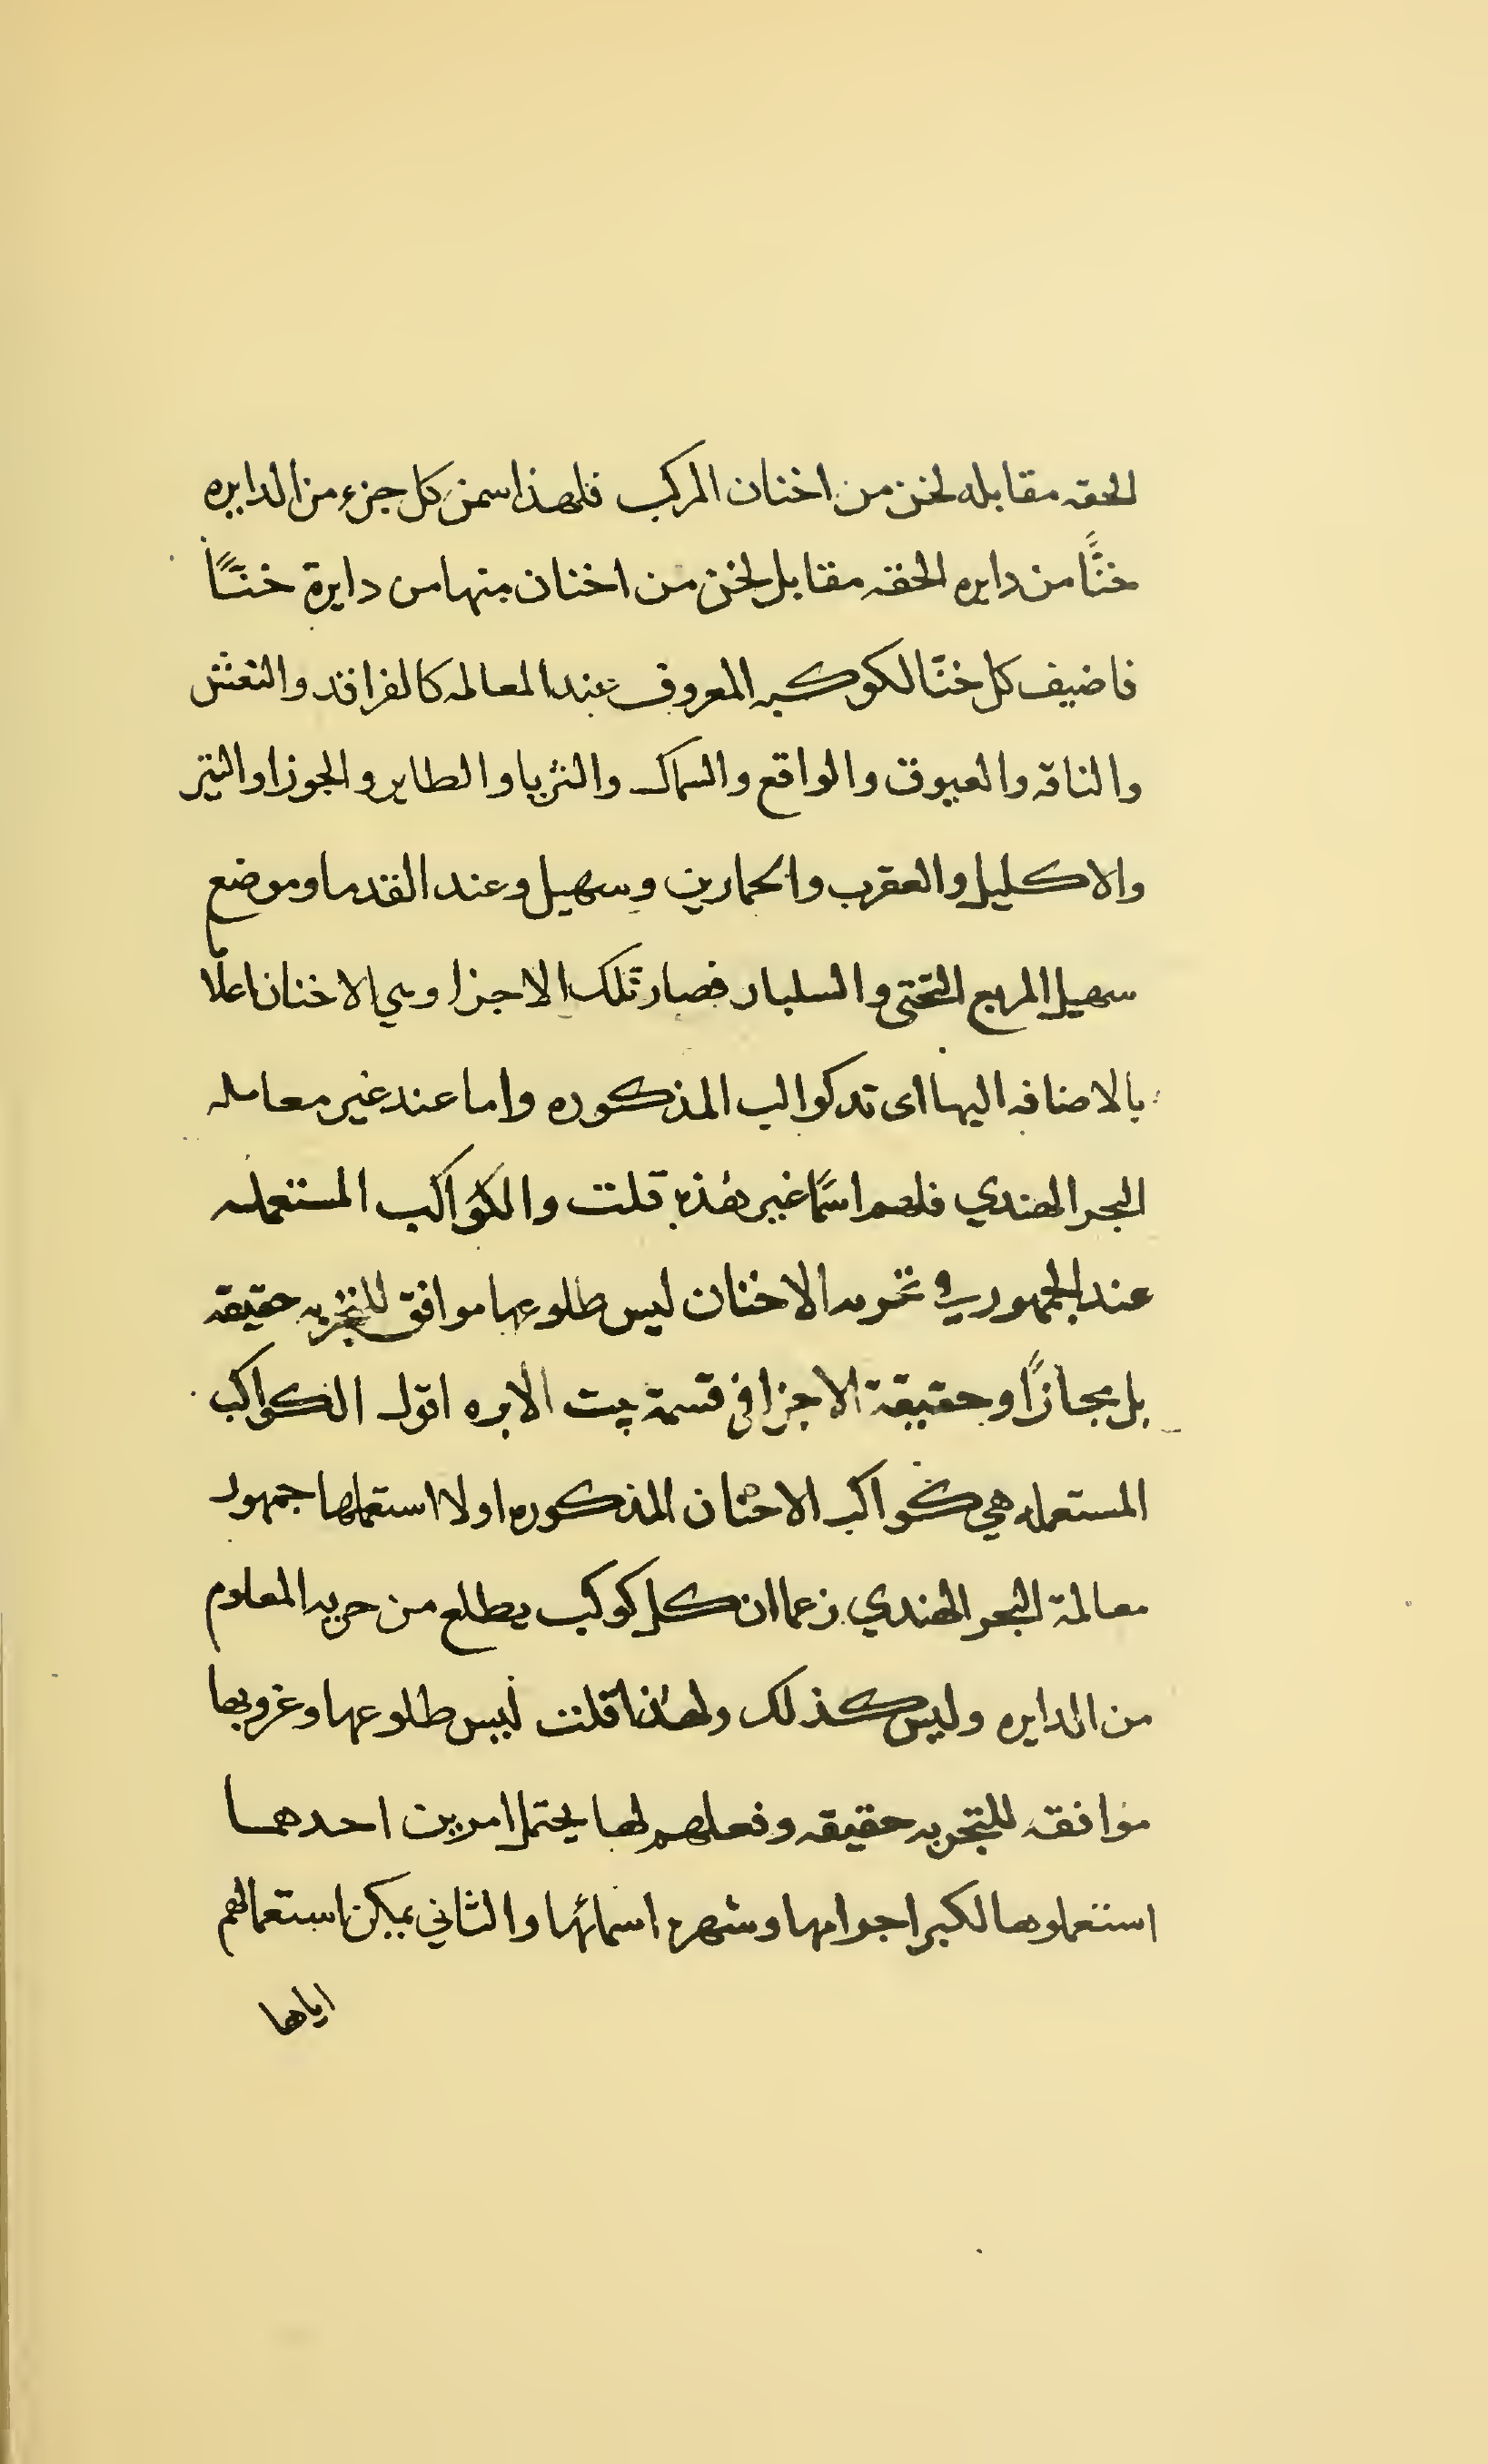 الحقه مقابله لخن من اخنان المركب فلهذا سمن كل جزء من الدايره
خنًّا من دايره الحقه مقابل لخن من اخنان منها من دايرة خنًّا
فاضيف كل خنًّا لكوكبه المعروف عند المعالمه كالفراقد والنعش
والناقه والعيوق والواقع والسماك والثريا والطاير والجوزا والتير
والاكليل والعقرب والحمارين وسهيل وعند القدما وموضع
سهيل المربع التحتى والسلبار فصار تلك الاجزا وهي الاخنان اعلاما
بالاضافه اليها اى تد كوالب المذكوره واما عند غير معامله
البحر الهندي فلهم اسمًا غير هذه قلت والكواكب المستعمله
عند الجمهور في الاخنان ليس طلوعها موافق للتجربه حقيقه
بل مجازًا وحقيقة الاجزا فى قسمة بيت الابره اقول الكواكب
المستعمله هي كواكب الاخنان المذكوره اولا استعملها جمهور
معالمة البحر الهندي زعما ان كل كوكب يطلع من جزيه المعلوم
من الدايره وليس كذلك ولهذا قلت ليس طلوعها وغروبها
موافقه للتجربه حقيقه وفعلهم لها يحتمل امرين احدهما
استعملوها لكبر اجرامها وشهره اسمائها والثاني يمكن استعمالهم
اياها